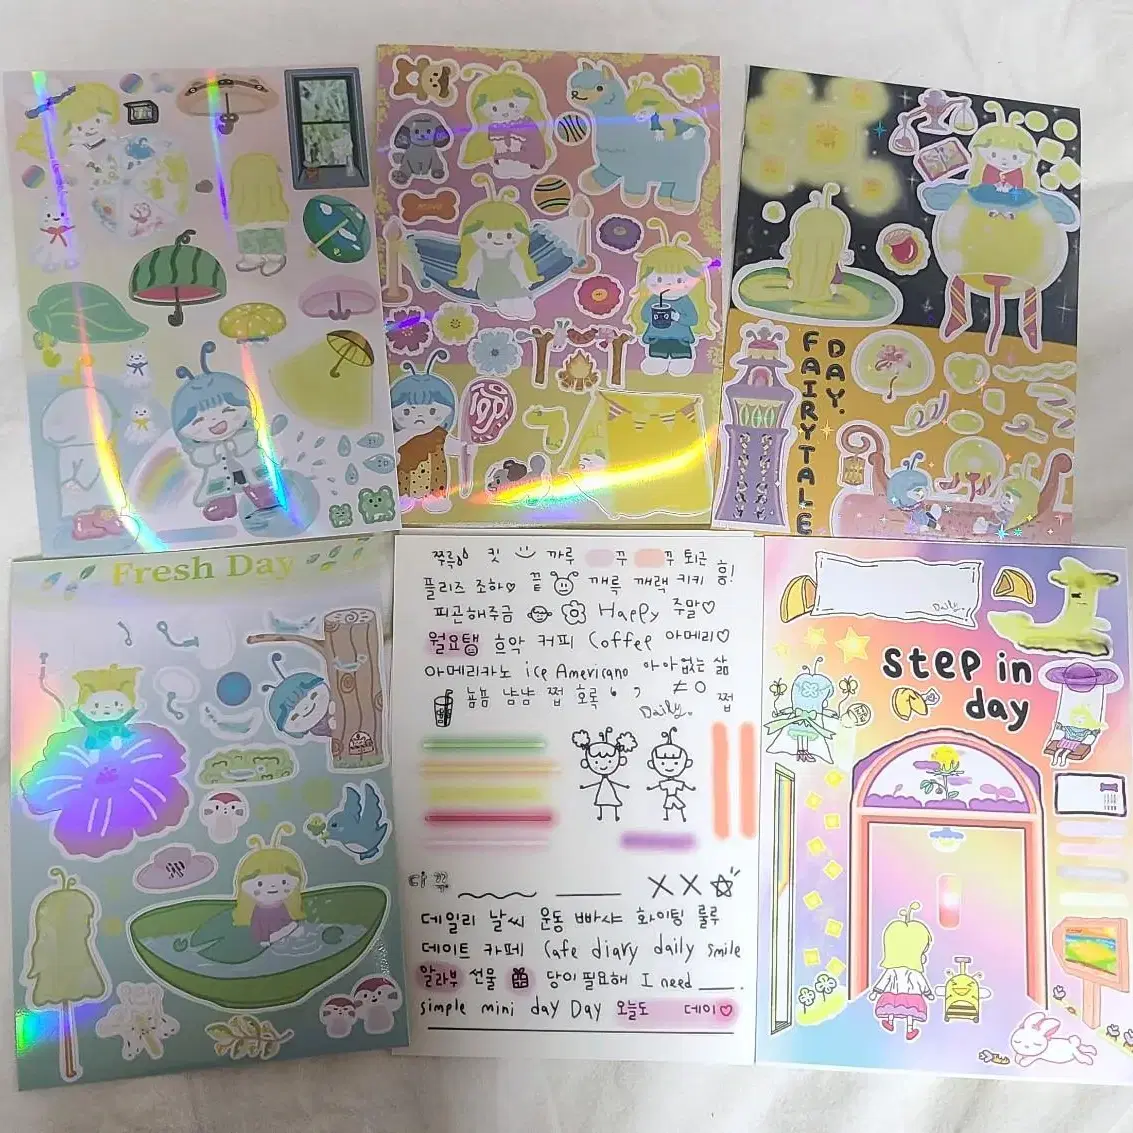 DAY.
FAIRYTALE
Fresh Day
쭈륵 킷 까루 꾸 꾸 퇴근
플리즈 조하♡ 끝 깨륵 깨랙 키키 흥!
피곤해주금 Happy 주말♡
월요탱 흐악 커피 Coffee 아메리♡
아메리카노 ice Americano 아아없는 삶
늄늄 냠냠 쩝 호록 ≠ 쩝
Daily.
데일리 날씨 운동 빠샤 화이팅 룰루
데이트 카페 Cafe diary daily smile
알라부 선물 당이필요해 I need ___.
simple mini day Day 오늘도 데이♡
Daily.
step in
day